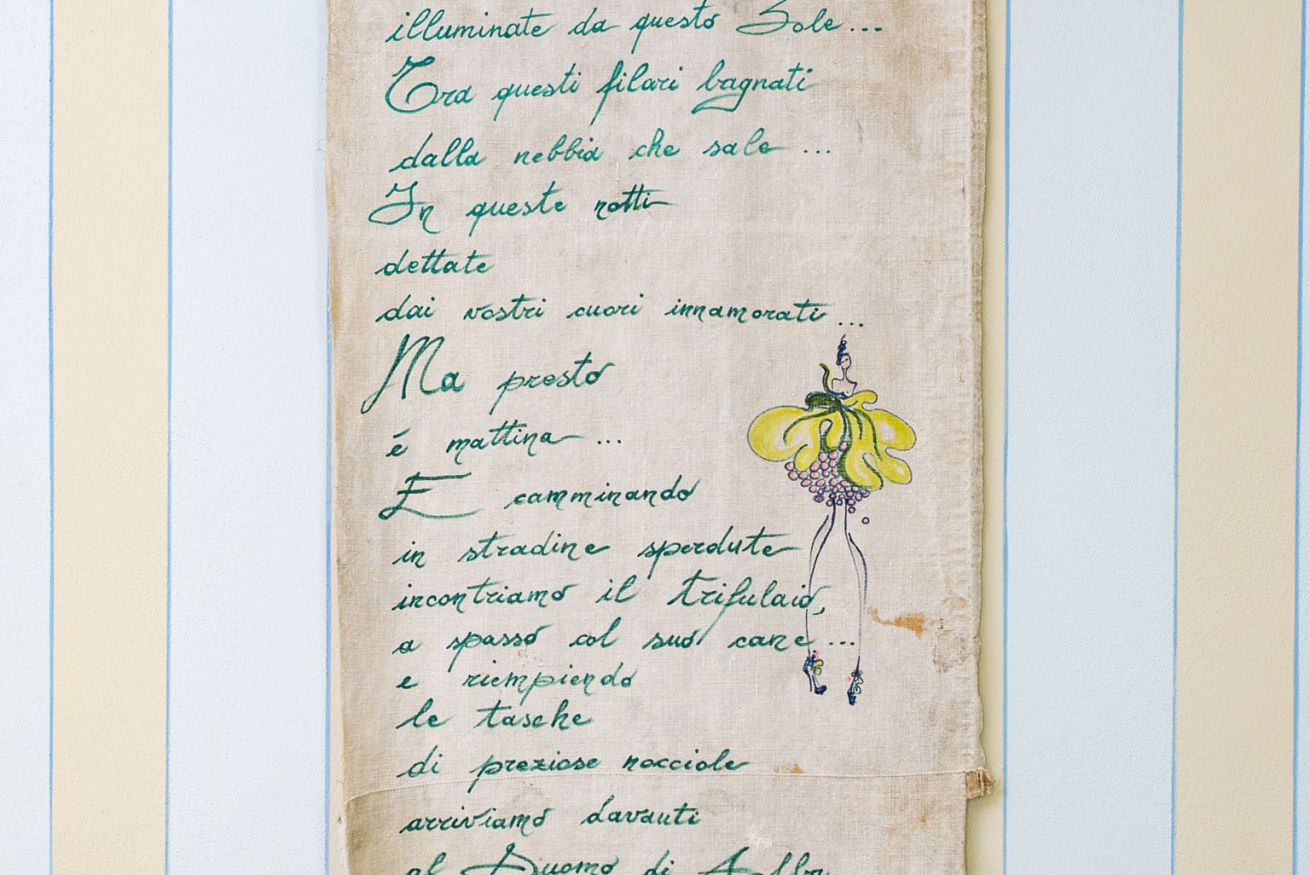 illuminate da questo Sole...
Tra questi filari bagnati
dalla nebbia che sale ...
In queste notti
dettate
dai vostri cuori innamorati...
Ma presto
é mattina ...
E camminando
in stradine sperdute
incontriamo il trifulaio,
a spasso col suo cane ...
e riempiendo
le tasche
di preziose nocciole
arriviamo davanti
al Duomo di Alba